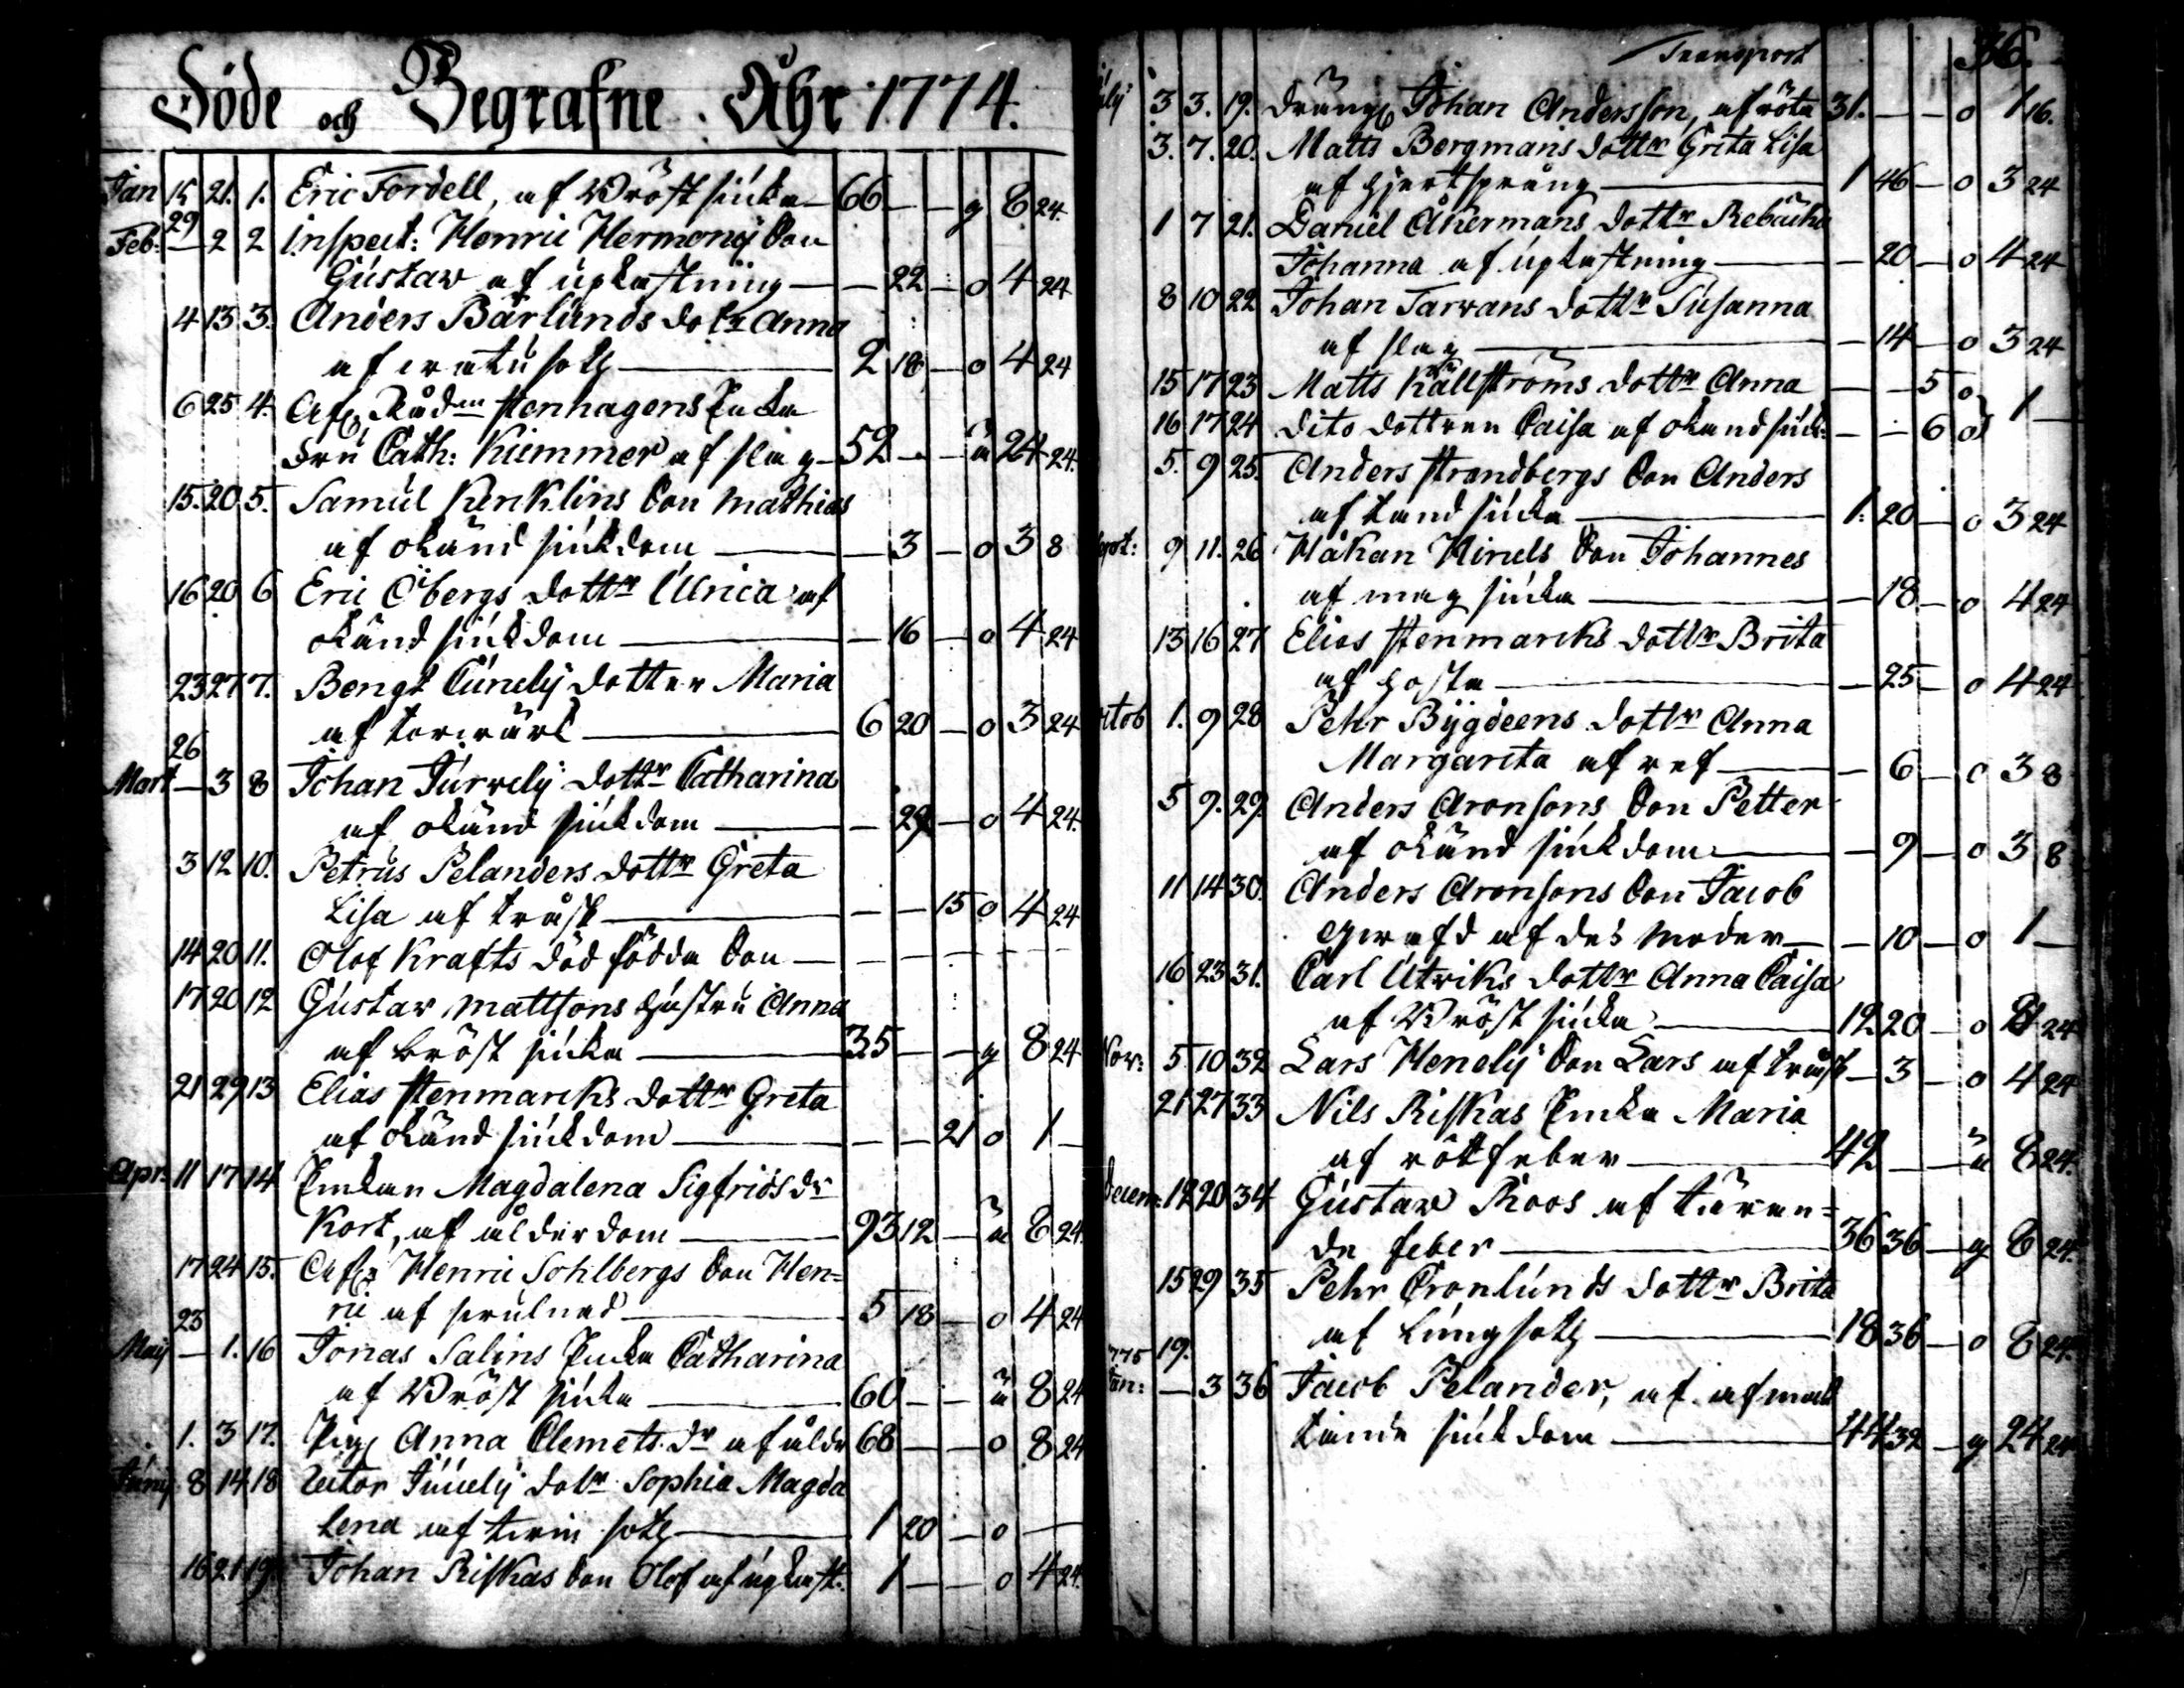 Döde och Begrafne Åhr 1774.
Jan 15 21. 1. Eric Fordell, af Bröst siuka 66 — — g 8 24
29
Feb: — 2 2 Inspect: Henric Hermonij Son
Gustaw af upkastning — 22 — o 4 24
4 13 3. Anders Bärlunds dotr Anna
af 2 18 — o 4 24
6 25 4. Afl. Rådm Stenhagens Enka
Fru Cath: Kummer af slag 52 — — ä 24 24.
15. 20 5. Samuel Kerklins Son Mathias
af okänd siukdom — 3 — o 3 8
16 20 6 Eric Öbergs dottr Ulrica af
okänd siukdom — 16 — o 4 24
23 27 7. Bengt dotter Maria
af 6 20 — o 3 24
26
Mart — 3 8 Johan dottr Catharina
af okänd siukdom — 29 — o 4 24.
3 12 10. Petrus Pelanders dottr Greta
Lisa af tråsk — — 15 o 4 24
14 20 11. Olof Krafts död födda Son —
17 20 12 Gustav Mattsons hustru Anna
af bröst siuka 35 — — g 8 24
21 29 13 Elias Stenmarcks dottr Greta
af okänd siukdom — — 21 o 1 —
Apr: 11 17 14 Enkan Magdalena Sigfrids dr
Kort, af ålderdom 93 12 — ä 8 24.
17 24 15. Henric Sohlbergs Son Hen=
ric af 5 18 — o 4 24
23
Maij — 1. 16 Jonas Salins Enka Catharina
af Bröst siuka 60 — — ä 8 24
1. 3 17. Pig. Anna Clemets dr af åldr 68 — — o 8 24
Junij 8 14 18 dotr Sophia Magda
lena af 1 20 — o —
16 21 19. Johan Riskas Son Olof af upkast: 1 — — o 4 24.
Transport 36.
3 3. 19. dräng Johan Andersson, af röta 31. — — o 1 16.
3. 7. 20. Matts Bergmans dottr Greta Lisa
af hjertsprång 1 46 — o 3 24
1 7 21. Daniel Åkermans dottr Rebecka
Johanna af upkastning — 20 — o 4 24
8 10 22 Johan Tarvans dottr Susanna
af slag — 14 — o 3 24
15 17 23 Matts Källströms dottr Anna — — 5 o
16 17 24 dito dottren Caisa af okänd siuk: — — 6 o 1 —
5. 9 25. Anders Strandbergs Son Anders
af siuka 1. 20 — o 3 24
9 11. 26 Håkan Son Johannes
af mag siuka — 18 — o 4 24
13 16 27 Elias Stenmarcks dottr Brita
af hosta — 25 — o 4 24
1. 9 28 Pehr Bygdeens dottr Anna
Margareta af ref — 6 — o 3 8
5 9. 29. Anders Aronsons Son Petter
af okänd siukdom — 9 — o 3 8
11 14 30. Anders Aronsons Son Jacob
qwafd af des Moder — 10 — o 1 —
16 23 31. Carl Utriks dottr Anna Caisa
af Bröst siuka 12 20 — o 8 24
Nov: 5 10 32 Lars Son Lars af tråsk — 3 — o 4 24
21 27 33 Nils Riskas Enka Maria
af rötfeber 42 — — ä 8 24.
Decem: 12 20 34 Gustaw Roos af täran=
de feber 36 36 — g 8 24.
15 29 35 Pehr Cronlunds dottr Brita
af Lungsot 18 36 — o 8 24.
1775 19.
Jan: — 3 36 Jacob Pelander, af afmat
tande siukdom 44 32 — g 24 24